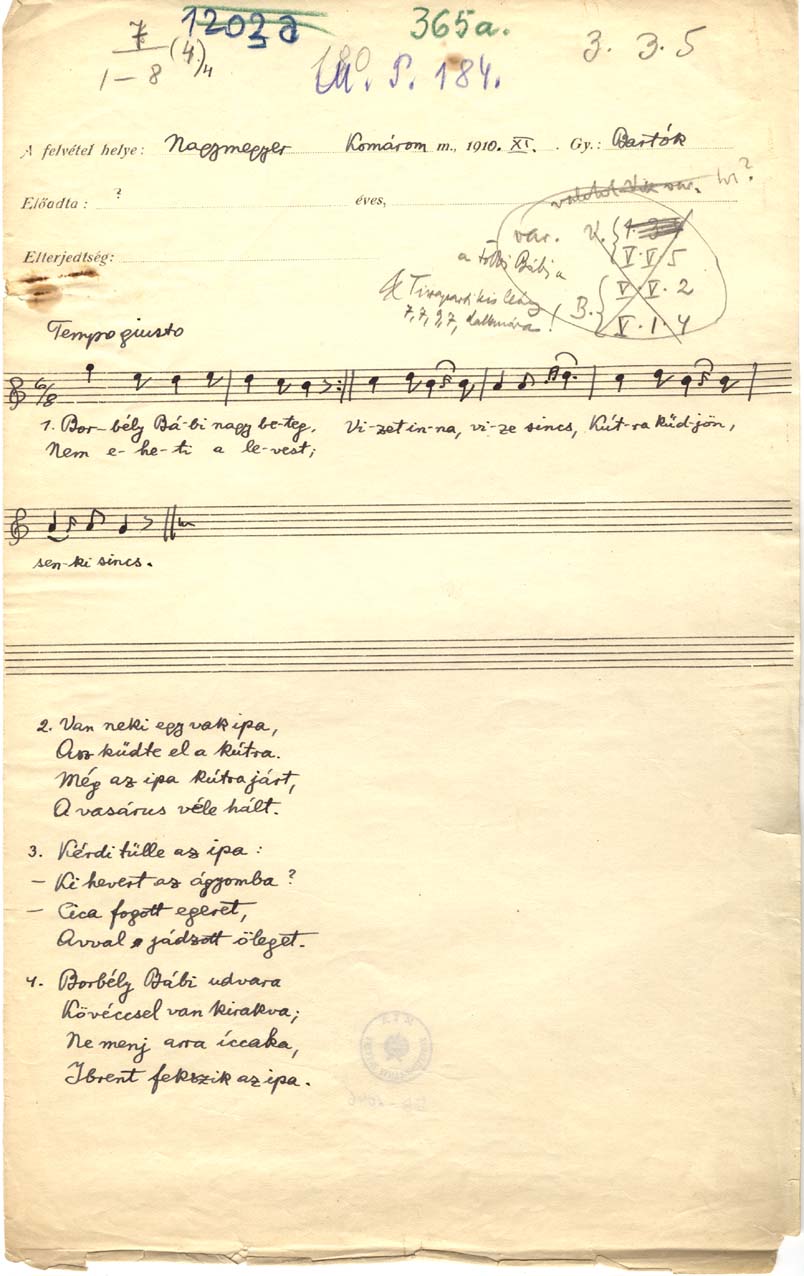 1202
365a.
7
1–8 (4)4
M. P. 184.
3. 3. 5
A felvétel helye: Nagymegyer Komárom m., 1910. XI. Gy.: Bartók
Előadta: ? éves,
var.
V. V. 5
Elterjedtség:
a Bábi a
V. V. 2
B.
7, 7, 9, 7,
V. 1. 4
Tempo giusto
6/8
1. Bor-bély Bá-bi nagy be-teg, Vi-zet in-na, vi-ze sincs, Kút-ra küd-jön,
Nem e-he-ti a le-vest;
sen-ki sincs.
2. Van neki egy vak ipa,
Asz küdte el a kútra.
Még az ipa kútra járt,
A vasárus véle hált.
3. Kérdi tülle az ipa:
– Ki hevert az ágyomba?
– Cica fogott egeret,
Avval jádzott öleget.
4. Borbély Bábi udvara
Kövéccsel van kirakva;
Ne menj arra íccaka,
Ibrent fekszik az ipa.